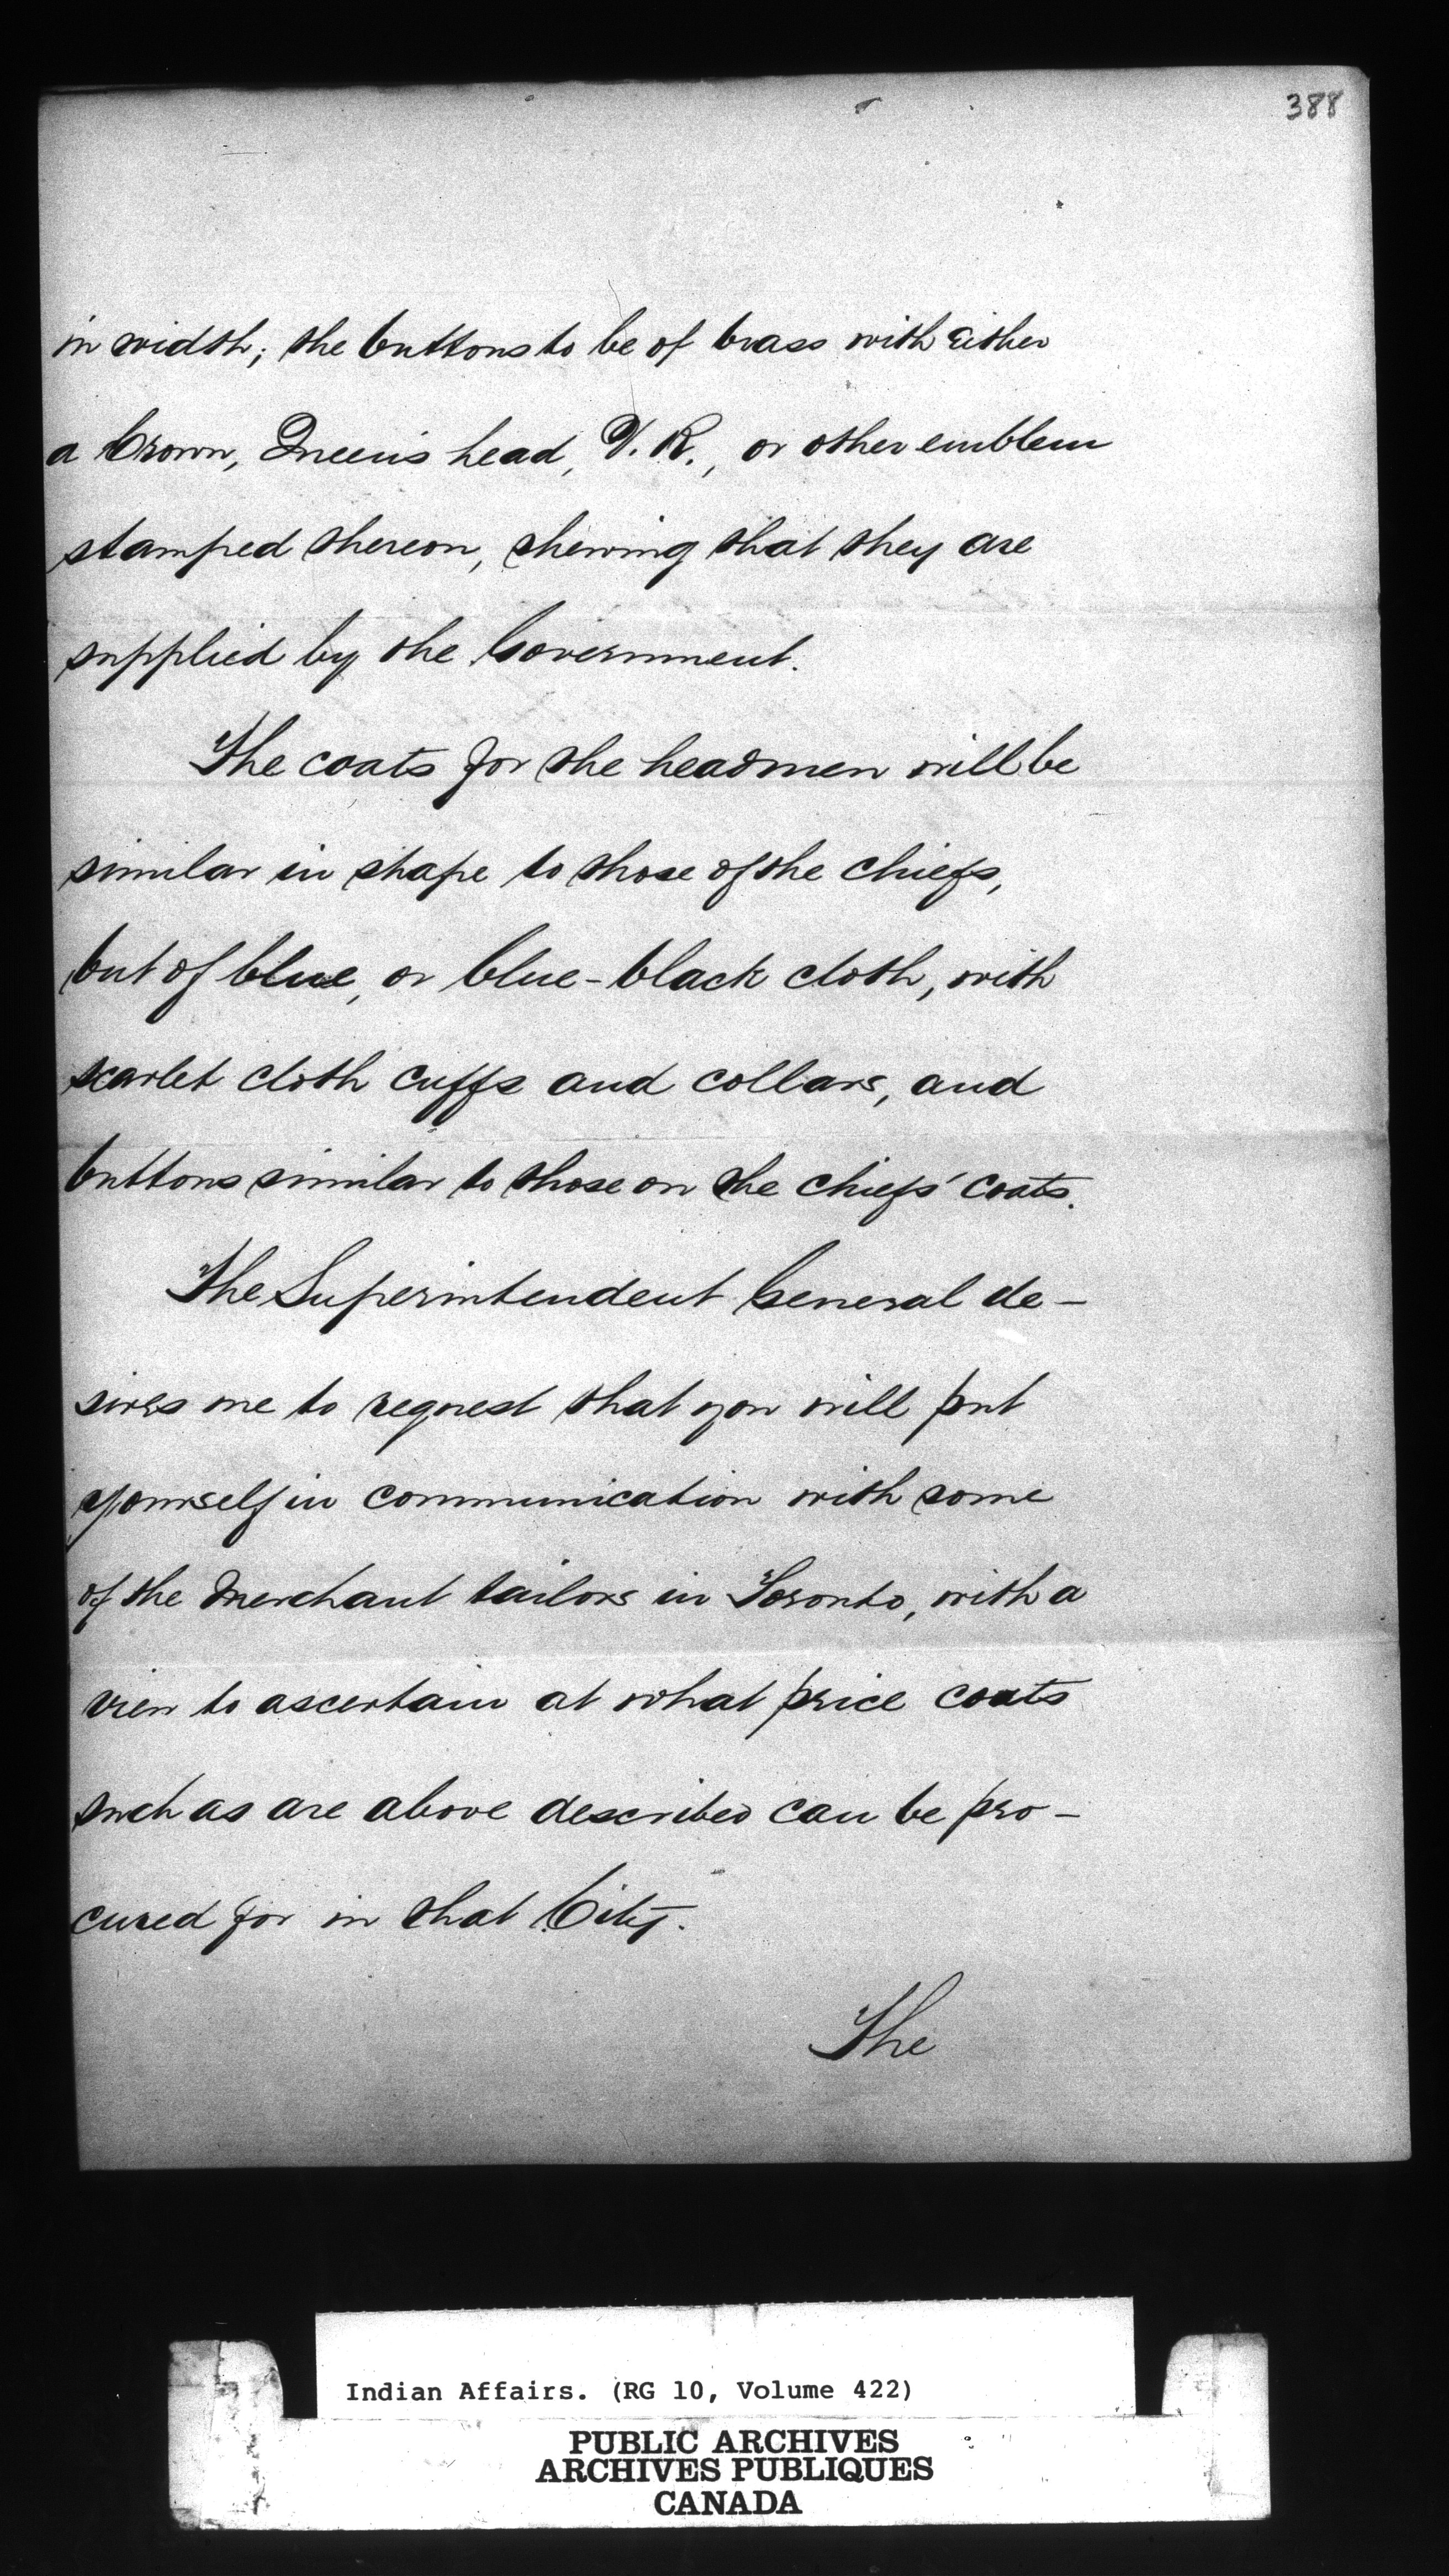 388
in width; the buttons to be of brass with either
a Crown, Queen's head, V.R., or other emblem
stamped thereon, shewing that they are
supplied by the Government.
The coats for the headmen will be
similar in shape to those of the chiefs,
but of blue, or blue-black cloth, with
scarlet cloth cuffs and collars, and
buttons similar to those on the chiefs' coats.
The Superintendent General de-
sires me to request that you will put
yourself in communication with some
of the Merchant tailors in Toronto, with a
view to ascertain at what price coats
such as are above described can be pro-
cured for in that City.
The
Indian Affairs. (RG 10, Volume 422)
PUBLIC ARCHIVES
ARCHIVES PUBLIQUES
CANADA